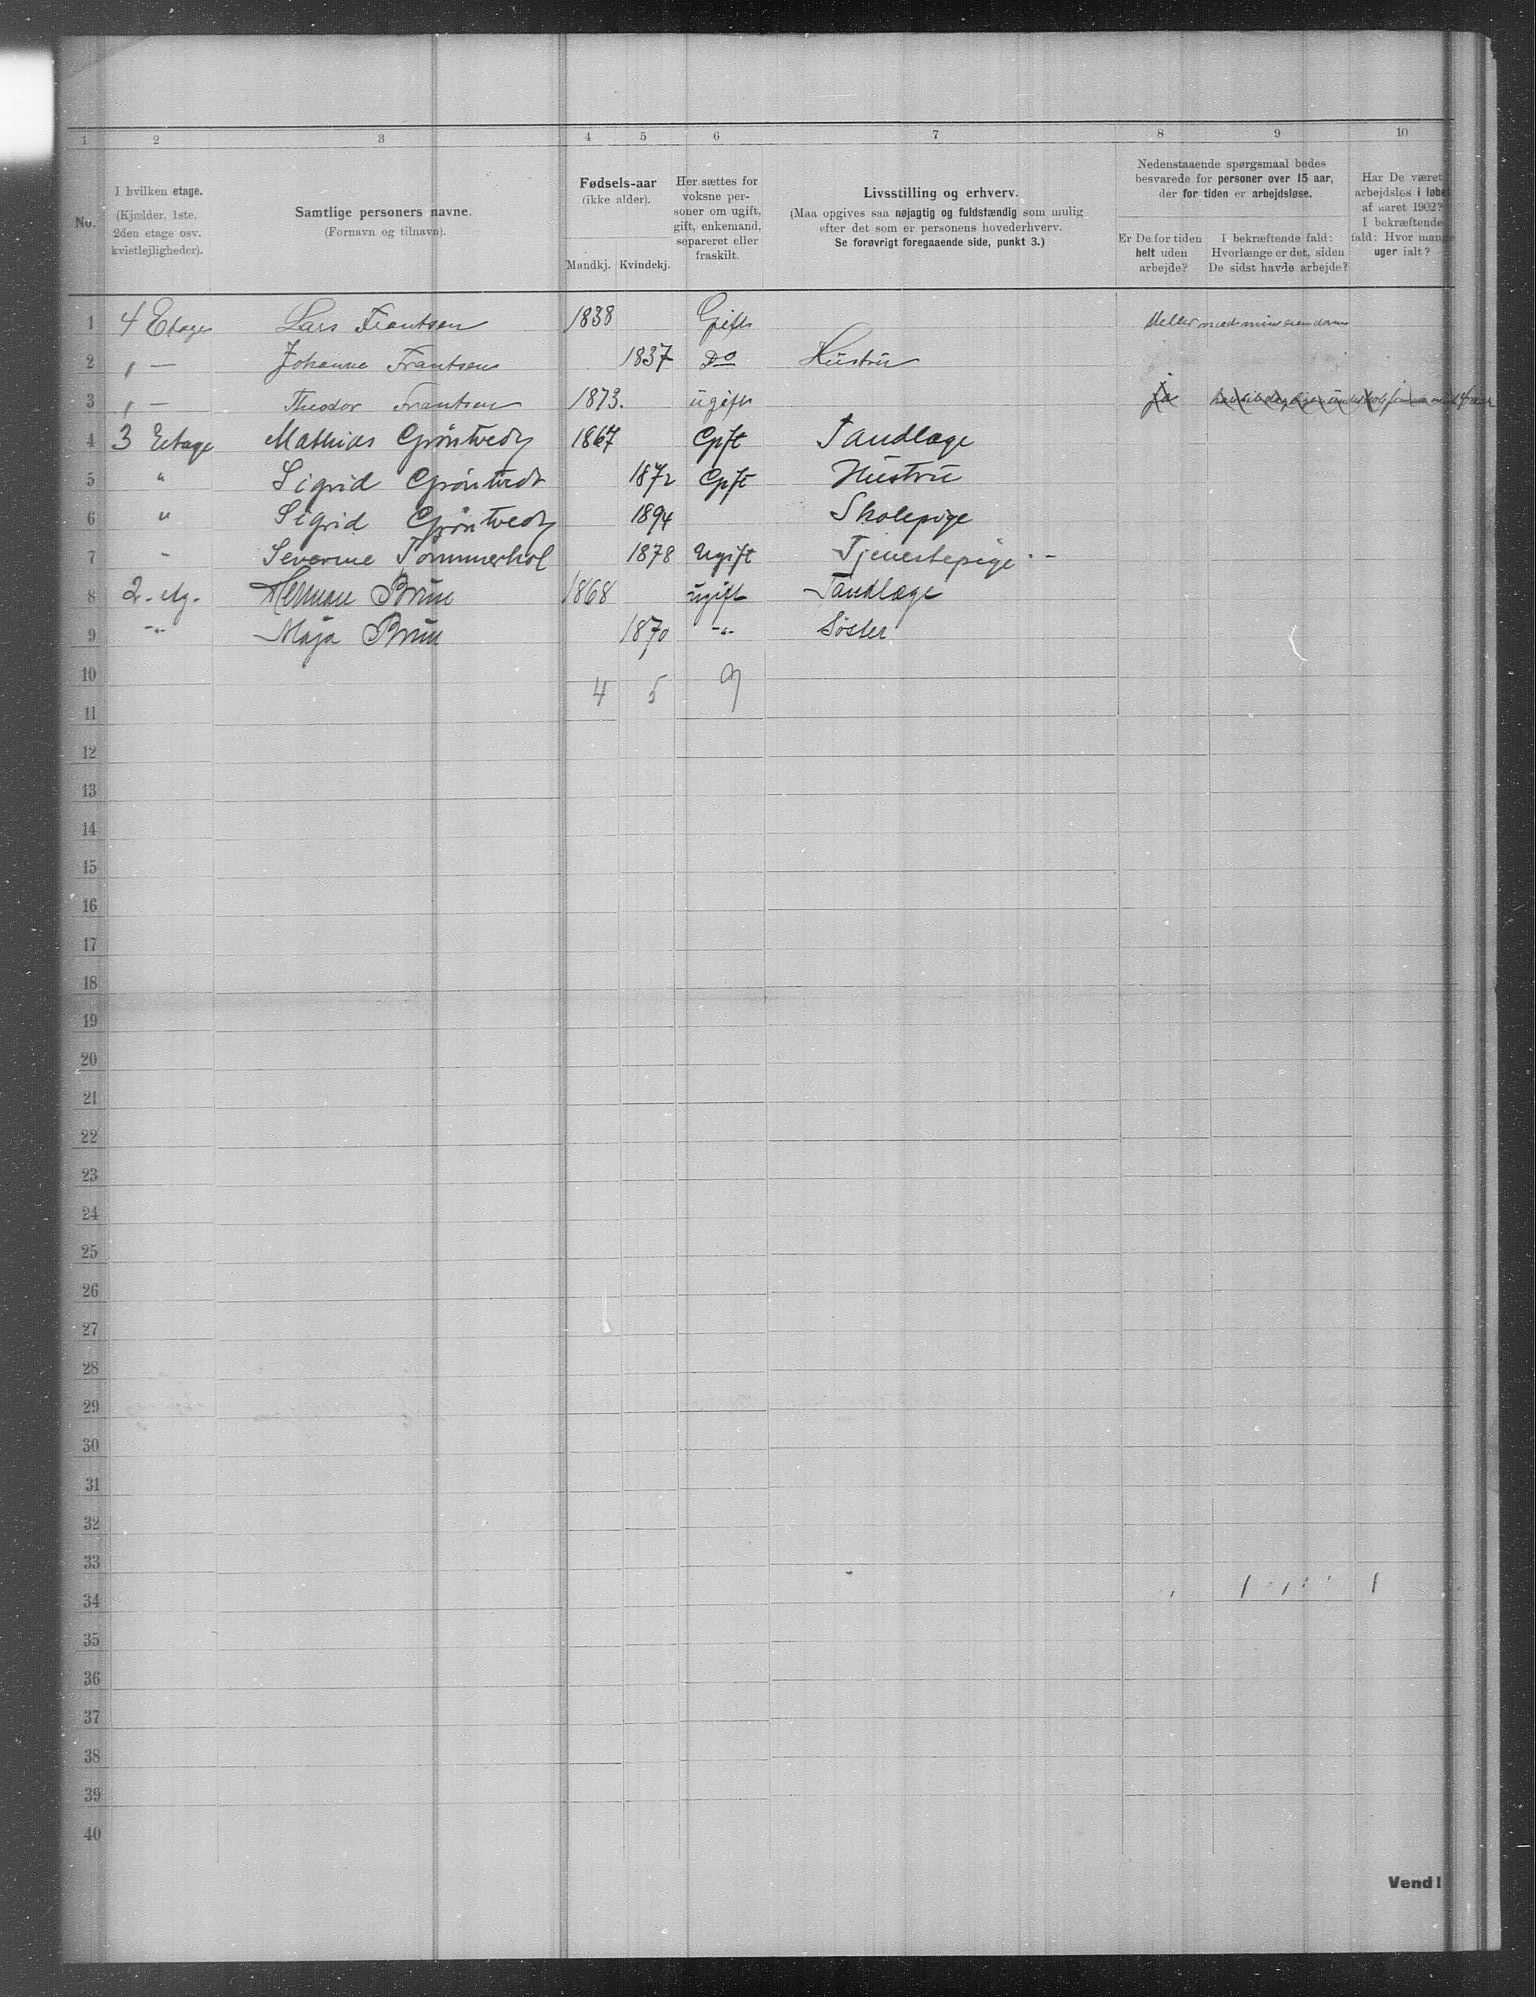 1 2 3 4 5 6 7 8 9 10
No.
I hvilken etage.
(Kjælder, 1ste,
2den etage osv.
kvistlejligheder).
Samtlige personers navne.
(Fornavn og tilnavn).
Fødsels-aar
(ikke alder).
Mandkj. Kvindekj.
Her sættes for
voksne per-
soner om ugift,
gift, enkemand,
separeret eller
fraskilt.
Livsstilling og erhverv.
(Maa opgives saa nøjagtig og fuldstændig som mulig
efter det som er personens hovederhverv.
Se forøvrigt foregaaende side, punkt 3.)
Nedenstaaende spørgsmaal bedes
besvarede for personer over 15 aar,
der for tiden er arbejdsløse.
Er De for tiden
helt uden
arbejde?
I bekræftende fald:
Hvorlænge er det, siden
De sidst havde arbejde?
Har De været
arbejdsløs i løbet
af aaret 1902?
I bekræftende
fald: Hvor mange
uger ialt?
1 4 Etage Lars Frantsen 1838 Gift Steller med min eiendom
2 " — Johanne Frantsen 1837 Do Hustru
3 " — Theodor Frantsen 1873. ugift ja
4 3 Etage Mathias Grøntvedt 1867 Gift Tandlæge
5 " Sigrid Grøntvedt 1872 Gift Hustru
6 " Sigrid Grøntvedt 1894 Skolepige
7 " Severine Tømmerhol 1878 Ugift Tjenestepige
8 2. etg. Herman Brun 1868 ugift Tandlæge
9 -"- Maja Brun 1870 -"- Søster
10
4 5 9
11
12
13
14
15
16
17
18
19
20
21
22
23
24
25
26
27
28
29
30
31
32
33
34
35
36
37
38
39
40
Vend!